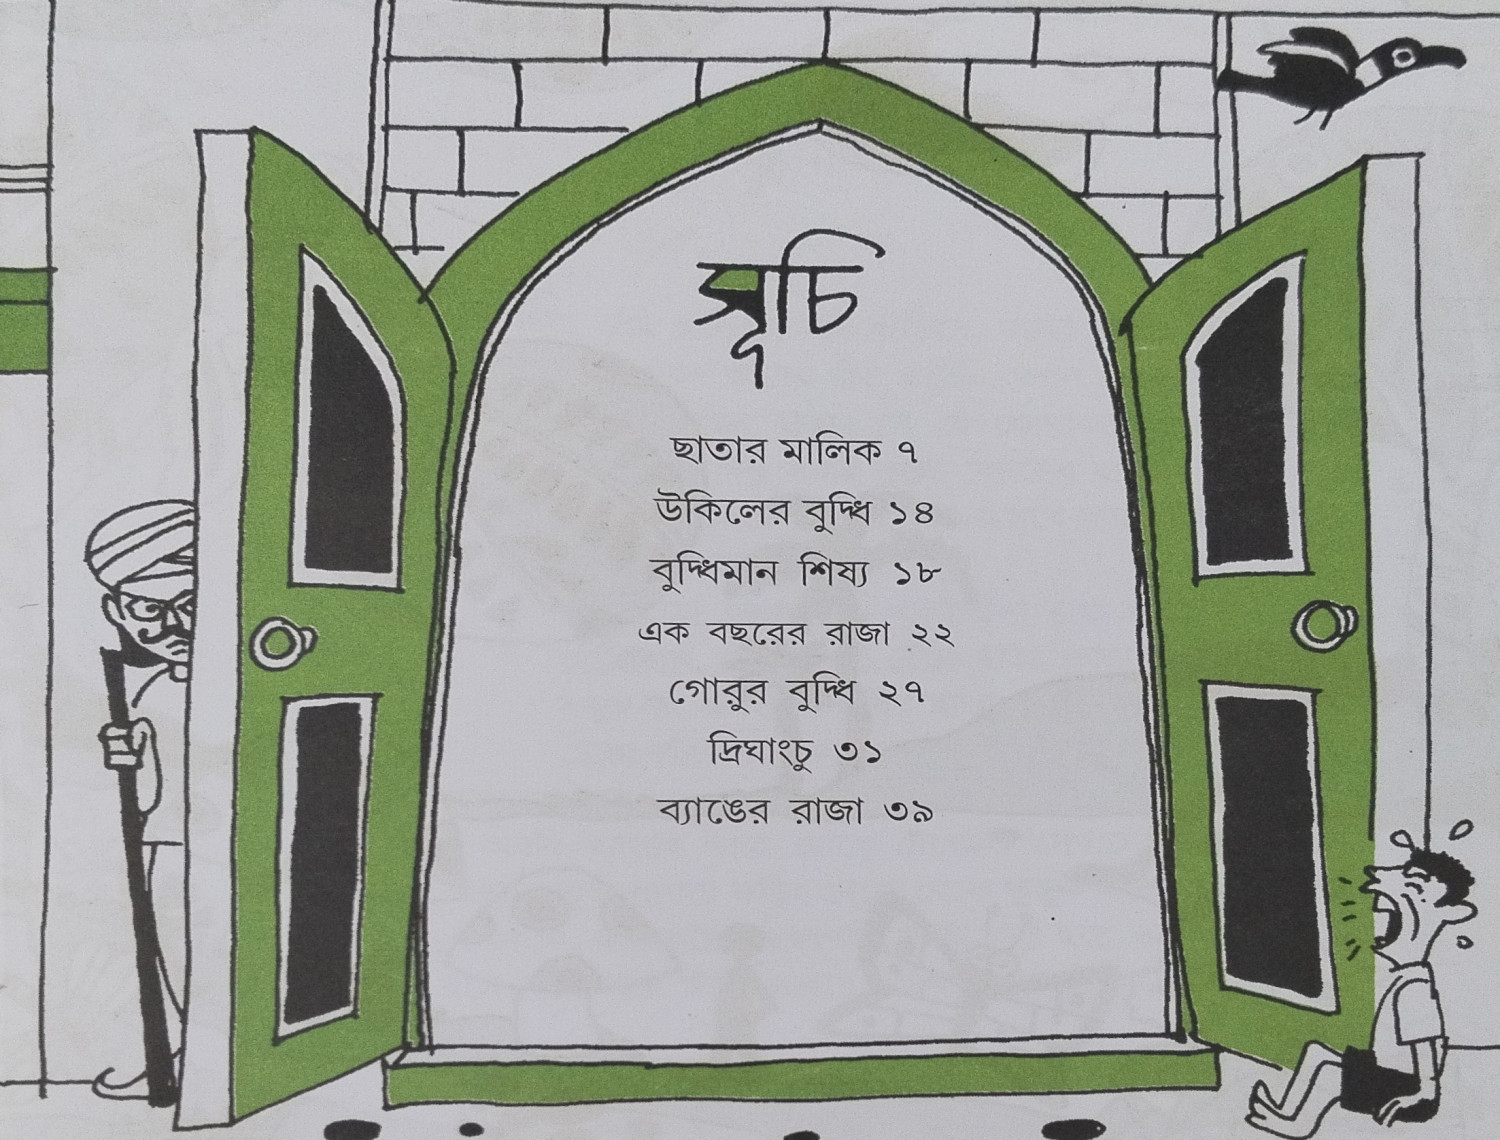 সূচি
ছাতার মালিক ৭
উকিলের বুদ্ধি ১৪
বুদ্ধিমান শিষ্য ১৮
এক বছরের রাজা ২২
গোরুর বুদ্ধি ২৭
দ্রিঘাংচু ৩১
ব্যাঙের রাজা ৩৯